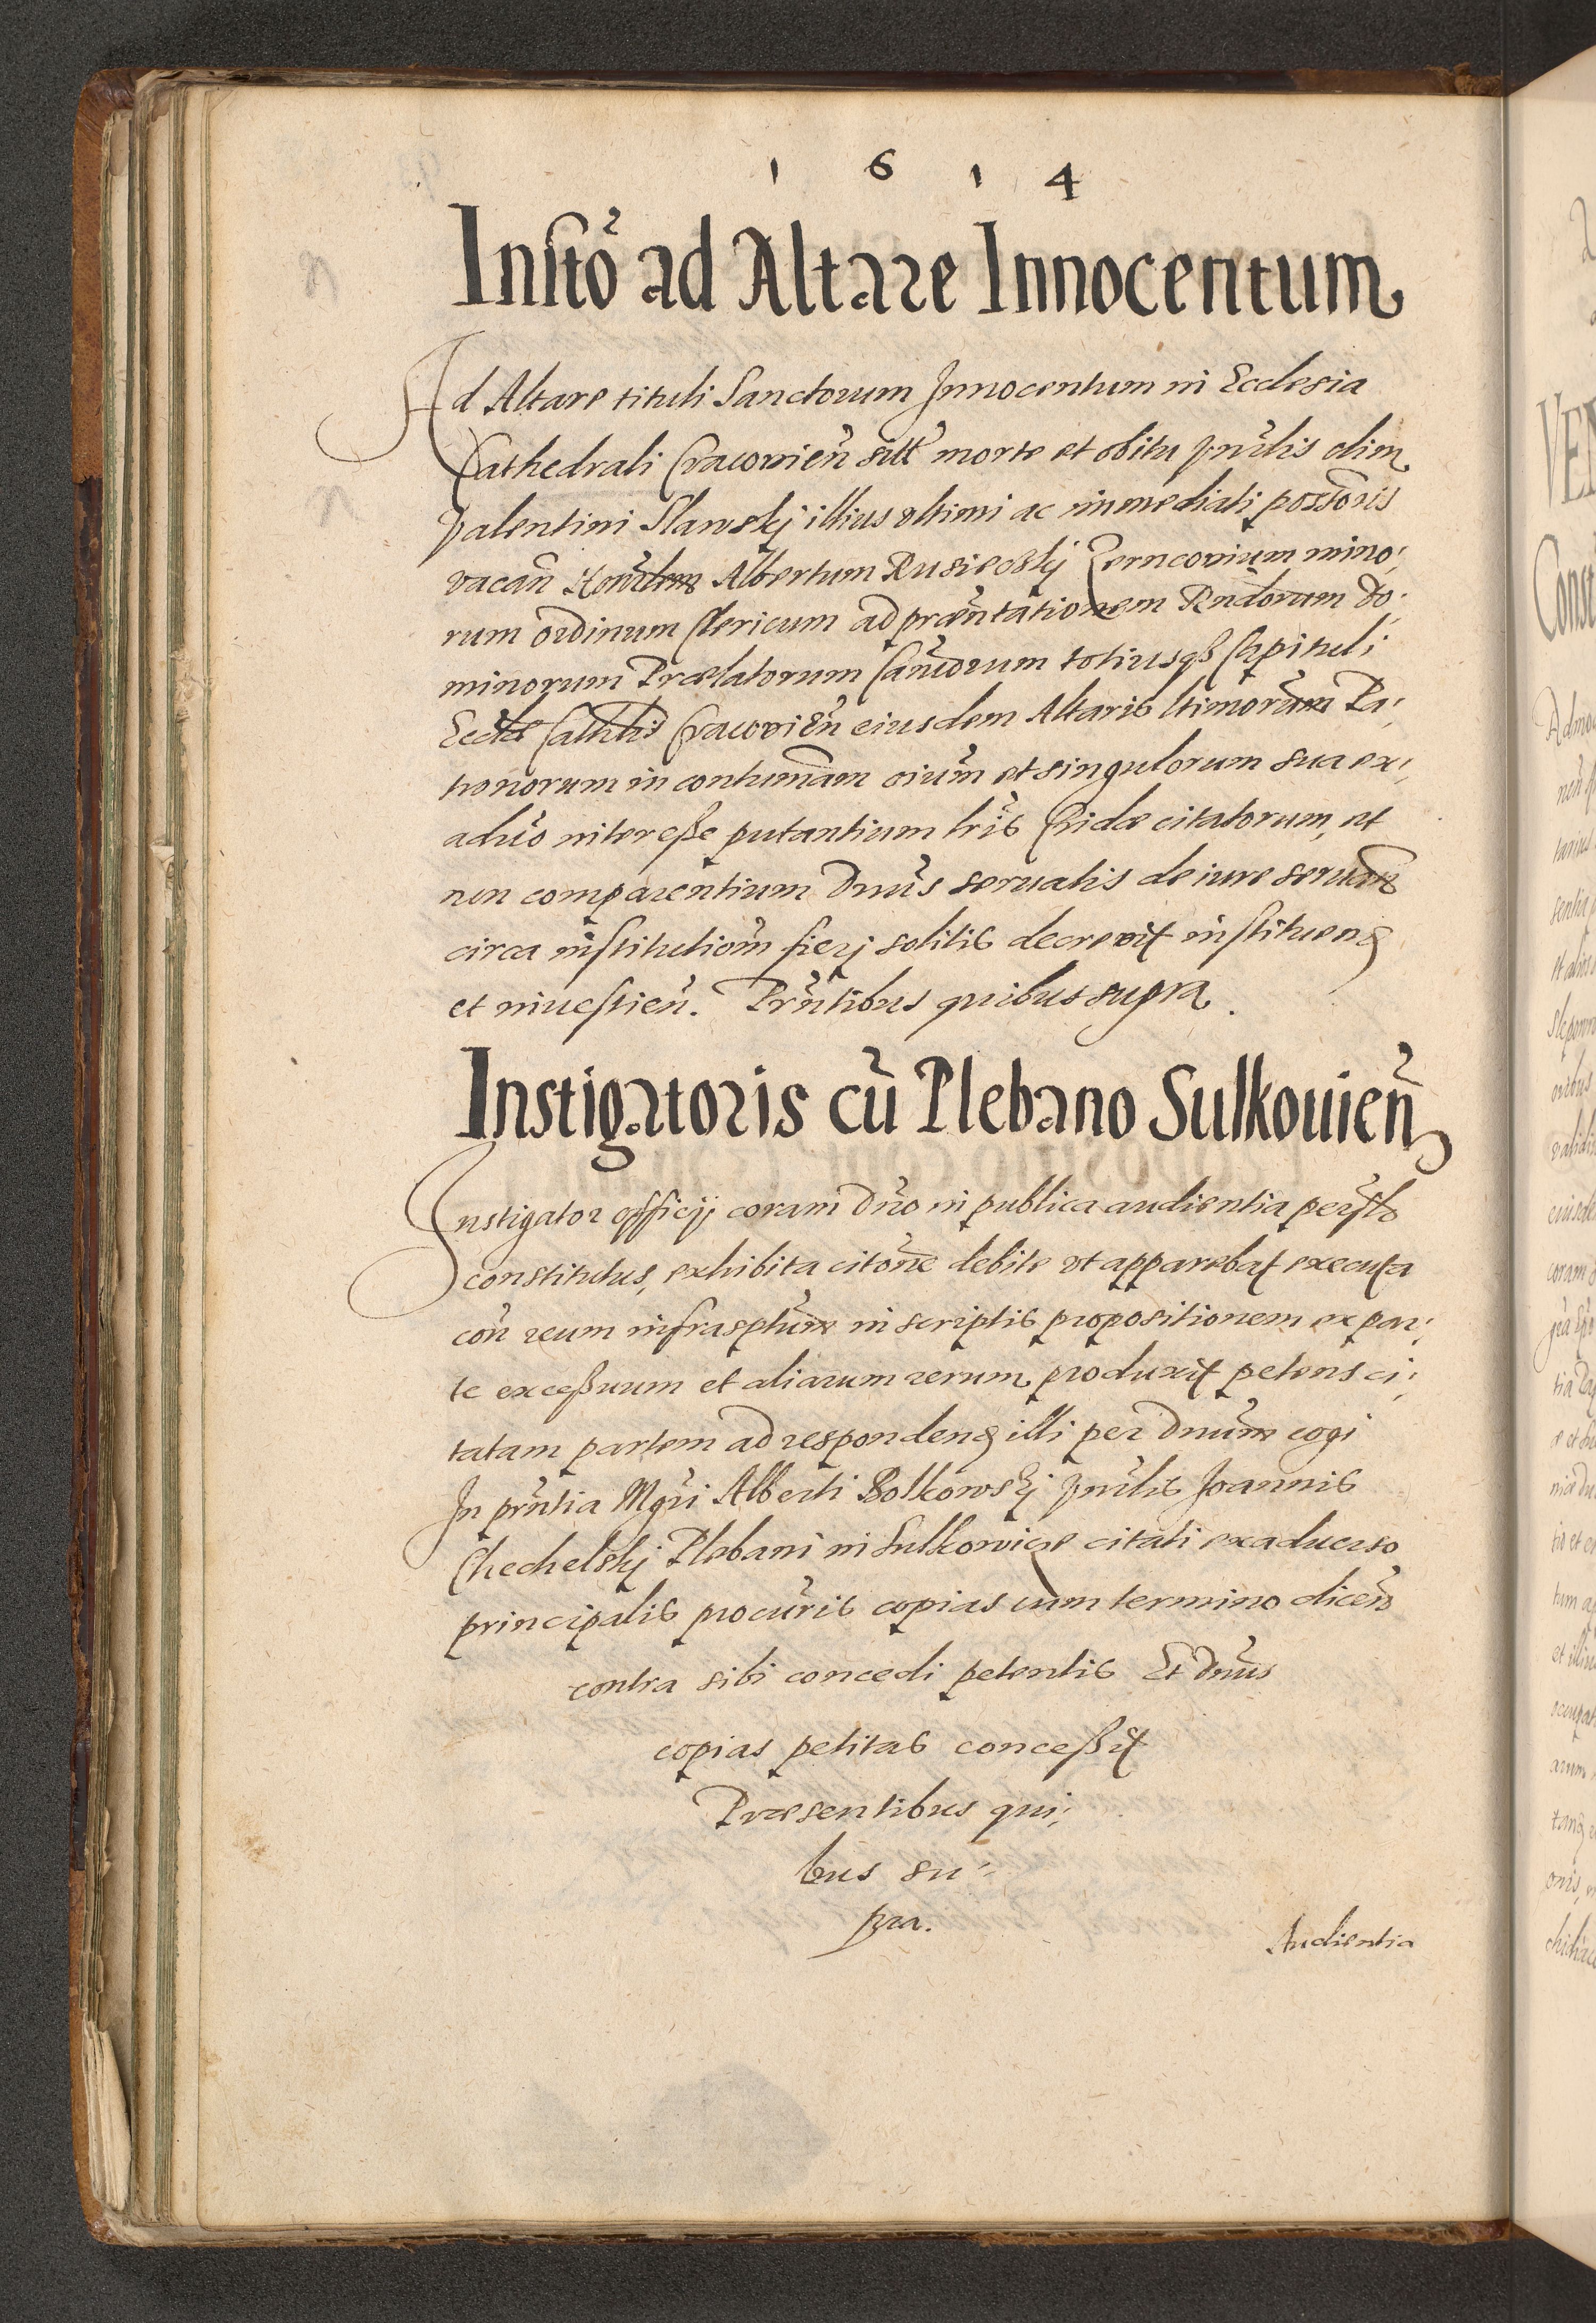 1 6 1 4
Insto ad Altare Innocentum
Ad Altare tituli Sanctorum Innocentum in Ecclesia
Cathedrali Cracovien sitt morte et obitu olim
Valentini Slawskj illius vltimi ac immediati possoris
vacan Albertum Rusieckj mino
rum ordinum Clericum ad præntationem Rndorum Do
minorum Prælatorum Canicorum totiusqȝ Capituli
Eccłæ Cathlis Cracovien eiusdem Altaris ltimorum Pa
tronorum in contumam oium et singulorum sua ex
aduo interesse putantium lris Cridæ citatorum, et
non comparentium Dnus seruatis de iure seruan
circa institutiom fierj solitis decrevit instituend
et inuestien. Prntibus quibus supra.
Instigatoris cū Plebano Sulkouien
Instigator officij coram Dno in publica audientia persłr
constitutus, exhibita citone debite vt apparebat executa
con reum infrasptum in scriptis propositionem ex par
te excessuum et aliarum rerum produxit petens ci
tatam partem ad respondend illi per Dnum cogi
In prntia Mgri Alberti Bolkowskj Joannis
Chechelskj Plebani in Sulkowice citati ex aduerso
principalis procuris copias cum termino dicen
contra sibi concedi petentis Et Dnus
copias petitas concessit
Præsentibus qui
bus su
pra.
Audientia